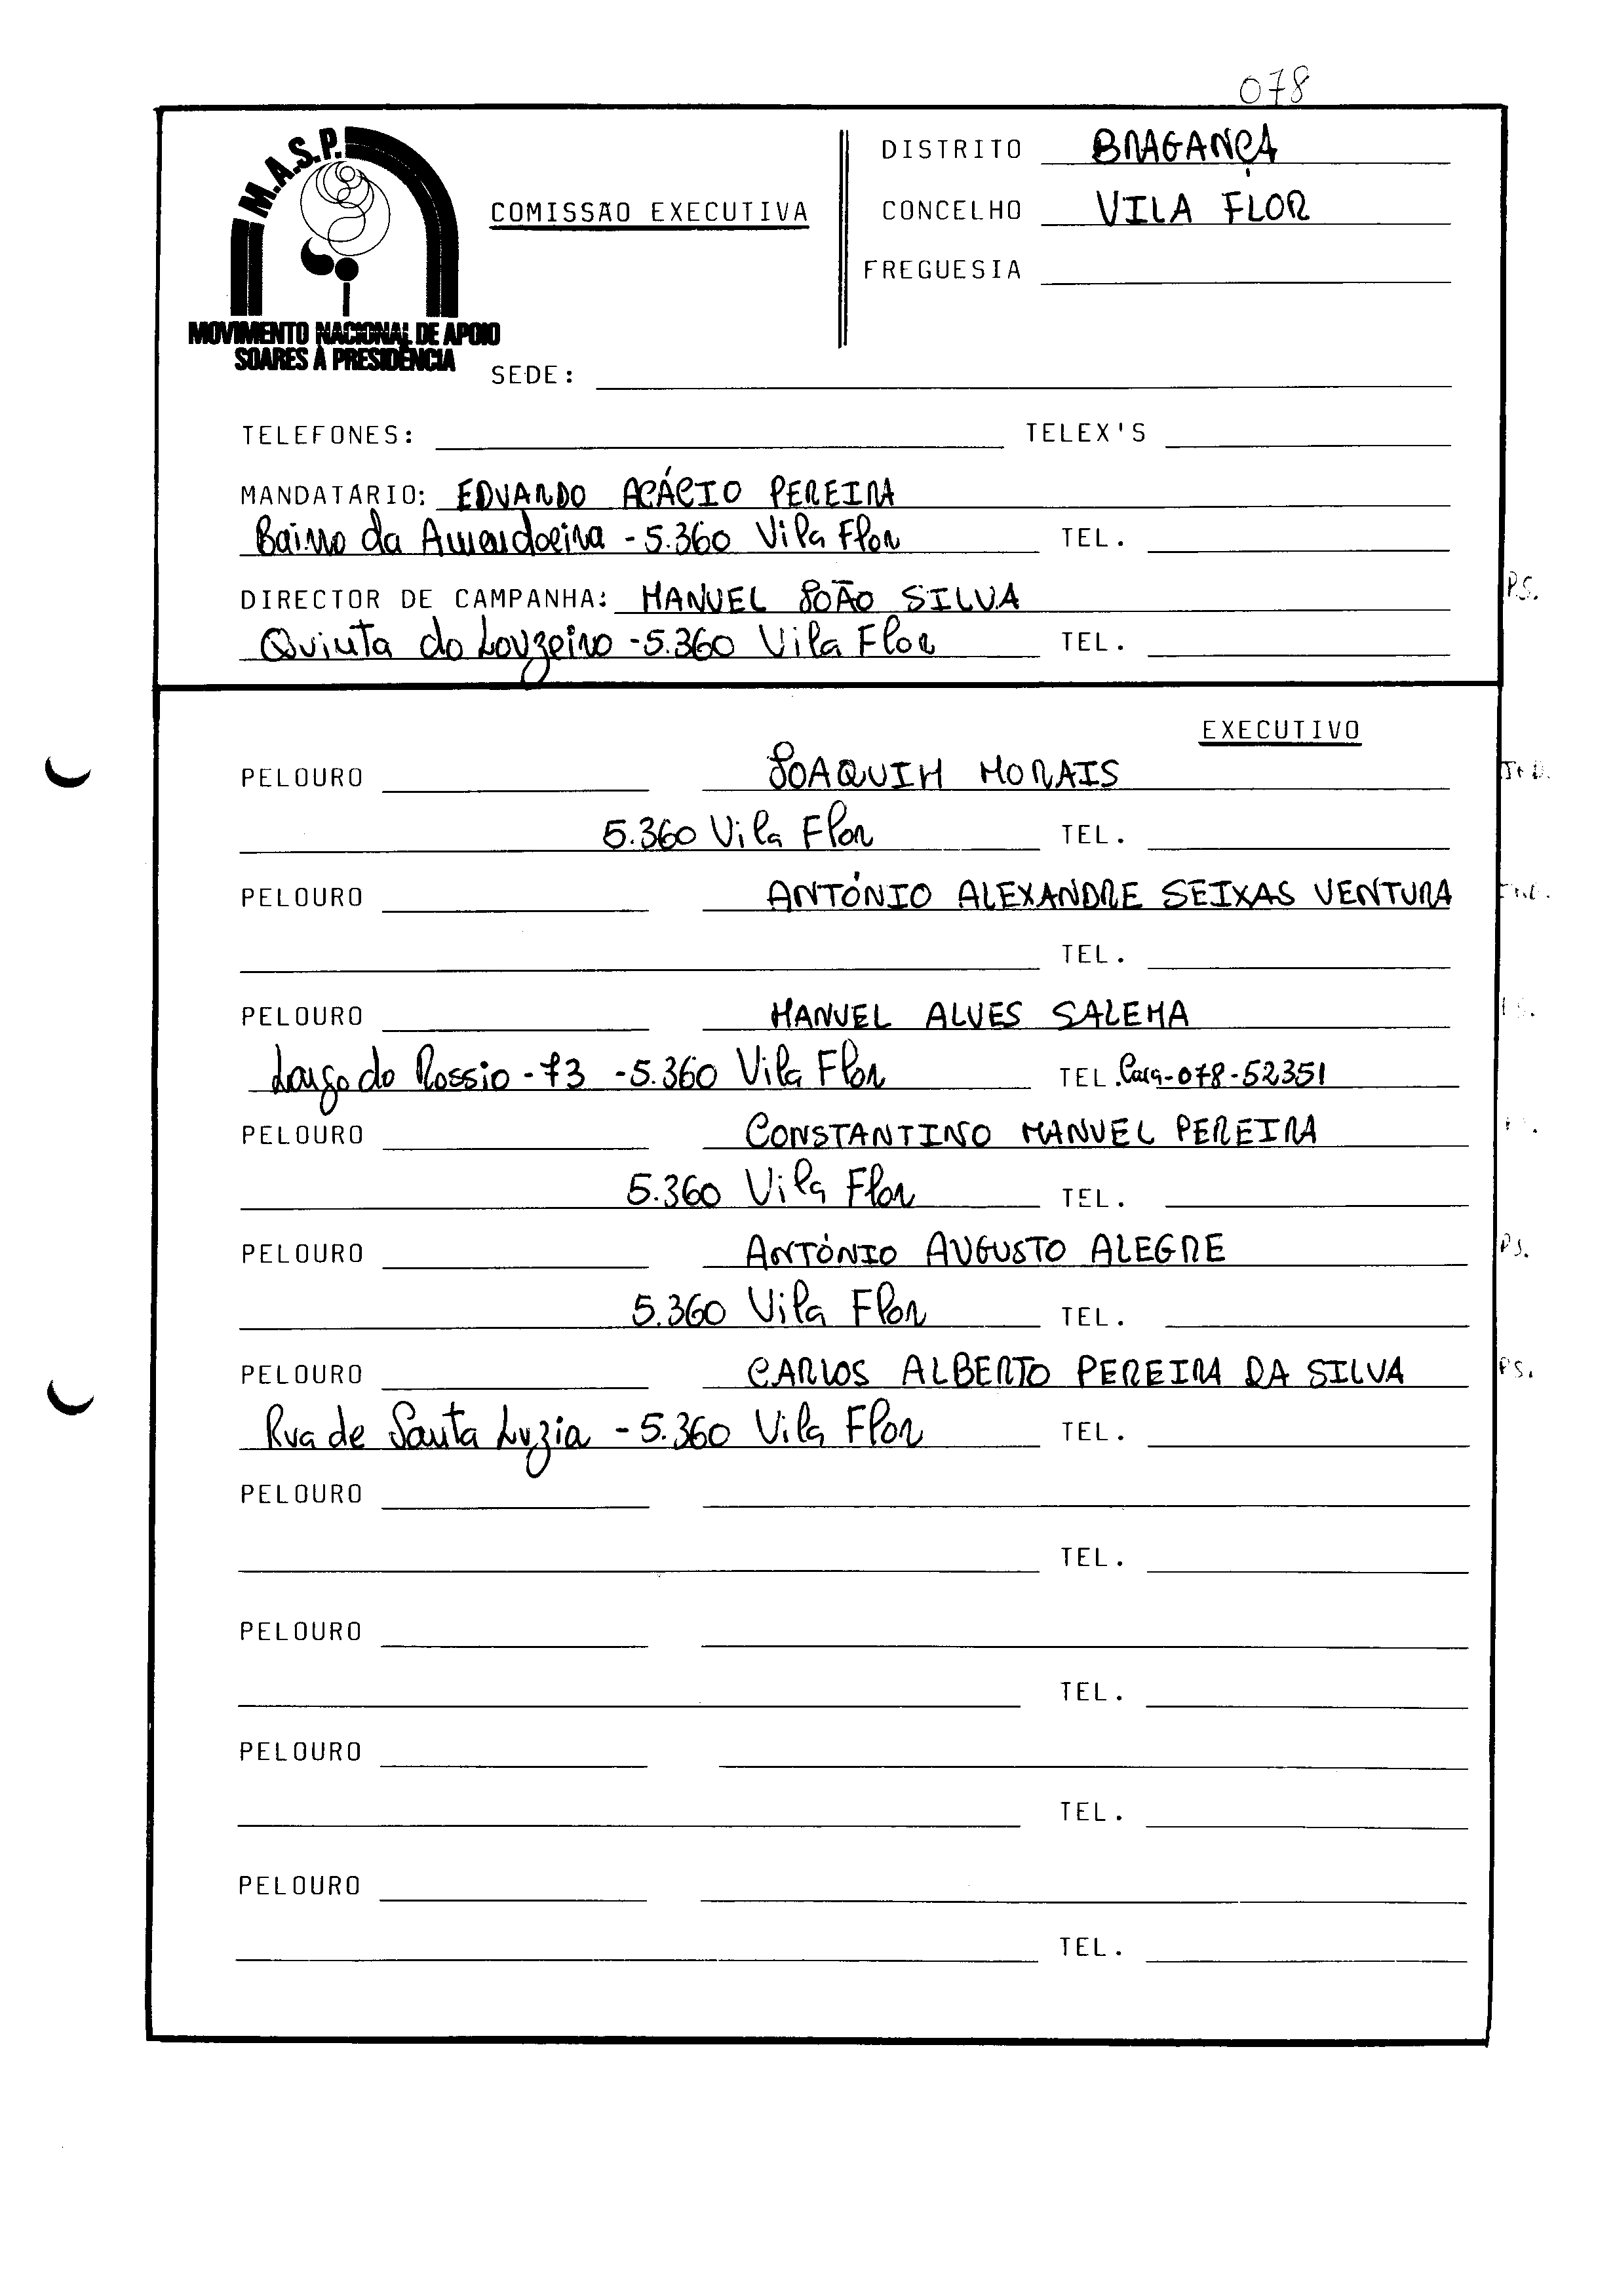 078
M.A.S.P.
MOVIMENTO NACIONAL DE APOIO
SOARES À PRESIDÊNCIA
COMISSÃO EXECUTIVA
DISTRITO BRAGANÇA
CONCELHO VILA FLOR
FREGUESIA
SEDE:
TELEFONES: TELEX'S
MANDATÁRIO: EDUARDO ACÁCIO PEREIRA
Bairro da Amendoeira - 5.360 Vila Flor TEL.
DIRECTOR DE CAMPANHA: MANUEL JOÃO SILVA P.S.
Quinta do Louzeiro - 5.360 Vila Flor TEL.
EXECUTIVO
PELOURO JOAQUIM MORAIS
5.360 Vila Flor TEL.
PELOURO ANTÓNIO ALEXANDRE SEIXAS VENTURA
TEL.
PELOURO MANUEL ALVES SALEMA
Largo do Rossio - 73 - 5.360 Vila Flor TEL. Casa - 078 - 52351
PELOURO CONSTANTINO MANUEL PEREIRA
5.360 Vila Flor TEL.
PELOURO ANTÓNIO AUGUSTO ALEGRE P.S.
5.360 Vila Flor TEL.
PELOURO CARLOS ALBERTO PEREIRA DA SILVA P.S.
Rua de Santa Luzia - 5.360 Vila Flor TEL.
PELOURO
TEL.
PELOURO
TEL.
PELOURO
TEL.
PELOURO
TEL.